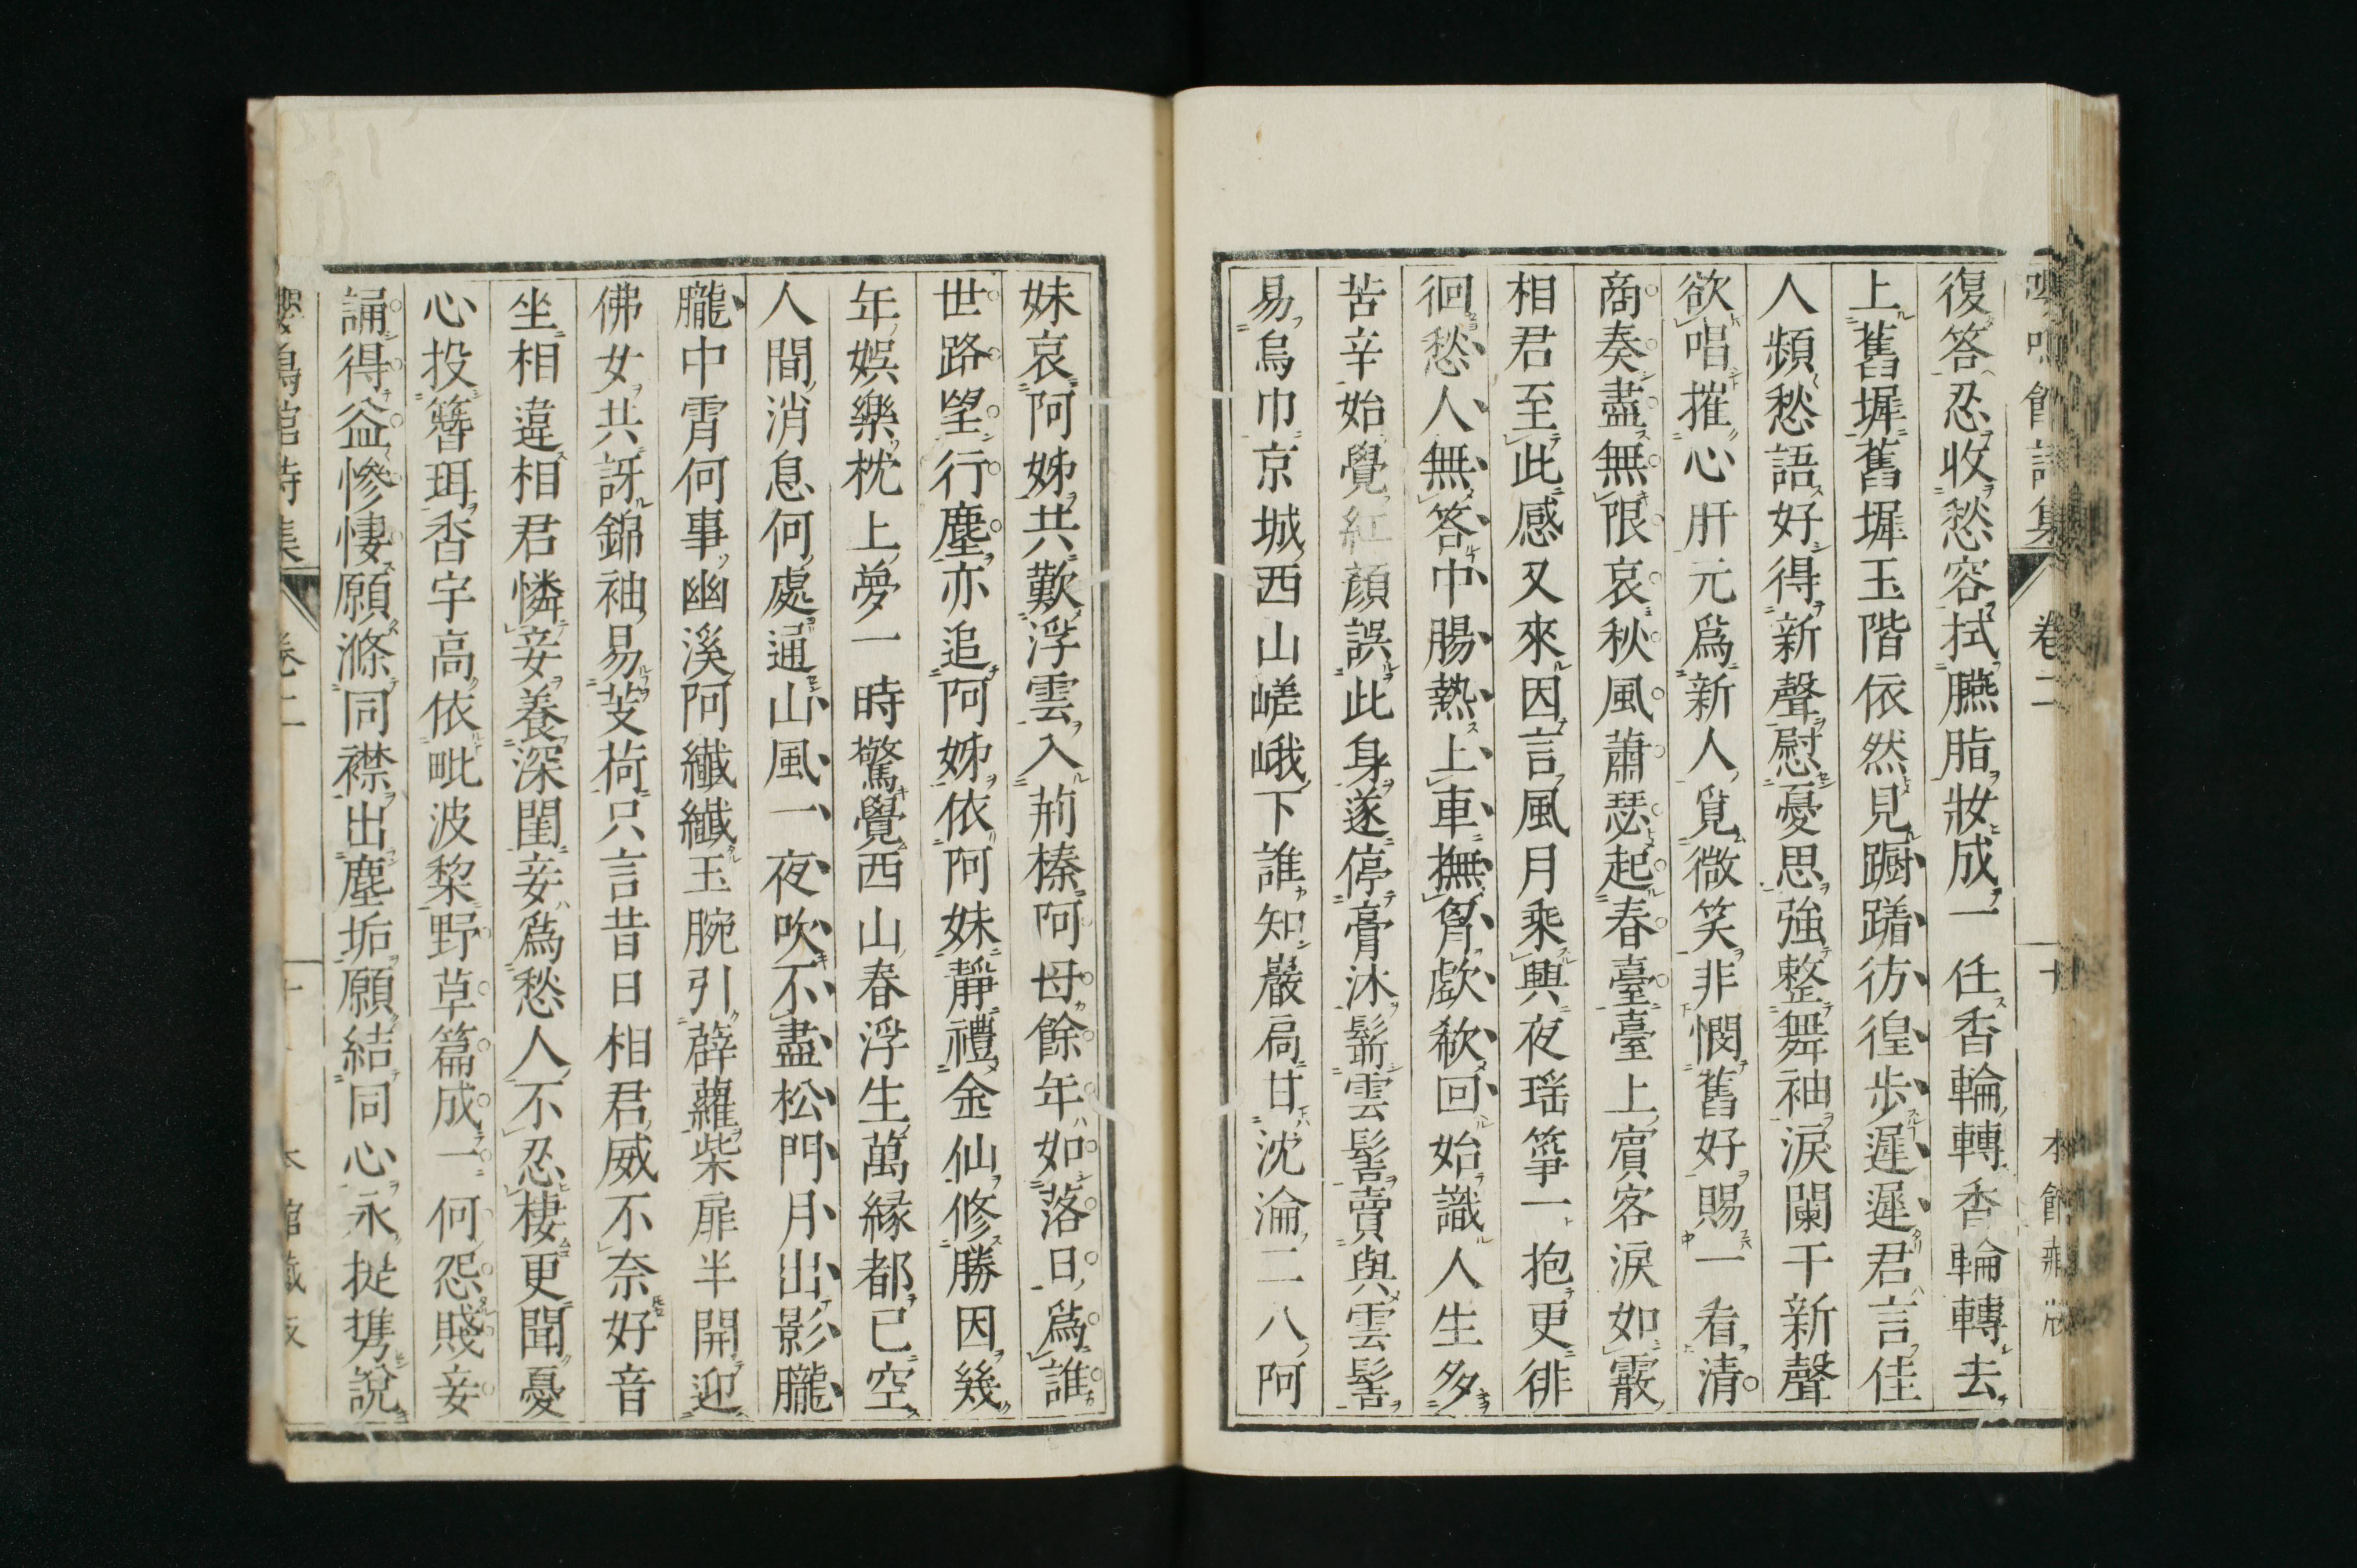 嚶鳴館詩集 卷二 本館藏版
復答忍收愁容拭臙脂妝成一任香輪轉香輪轉去
上舊墀舊墀玉階依然見躕躇彷徨步遲遲君言佳
人頻愁語好得新聲慰憂思強整舞袖淚闌干新聲
欲唱摧心肝元爲新人覓微笑非憫舊好賜一看清
商奏盡無限哀秋風蕭瑟起春臺臺上賓客淚如霰
相君至此感又來因言風月乘興夜瑶箏一抱更徘
徊愁人無答中腸熱上車撫膺歔欷回始識人生多
苦辛始覺紅顏誤此身遂停膏沐鬋雲髻賣與雲髻
易烏巾京城西山嵯峨下誰知巖扃甘沈淪二八阿
妹哀阿姊共歎浮雲入荊榛阿母餘年如落日爲誰
世路望行塵亦追阿姊依阿妹靜禮金仙修勝因幾
年娯樂枕上夢一時驚覺西山春浮生萬緣都已空
人間消息何處通山風一夜吹不盡松門月出影朧
朧中霄何事幽溪阿纖纖玉腕引薜蘿柴扉半開迎
佛女共訝錦袖易芰荷只言昔日相君威不奈好音
坐相違相君憐妾養深閨妾爲愁人不忍棲更聞憂
心投簪珥杳宇高依毗波棃野草篇成一何怨賤妾
誦得益慘悽願滌同襟出塵垢願結同心永提携說
嚶鳴館詩集 卷二 本館藏版